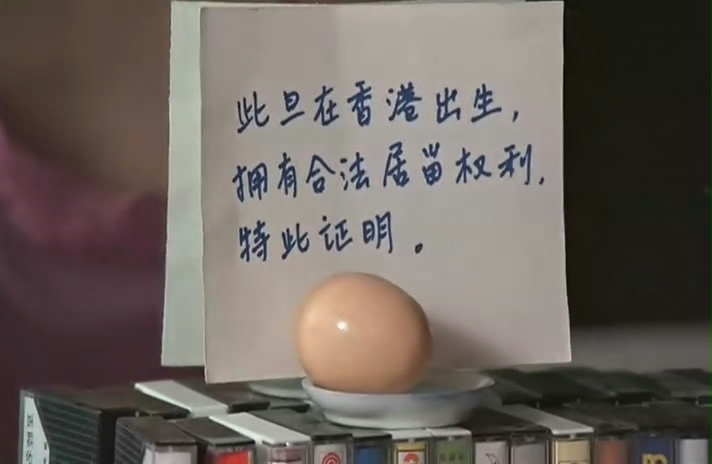 此旦在香港出生,
拥有合法居畄权利.
特此证明。